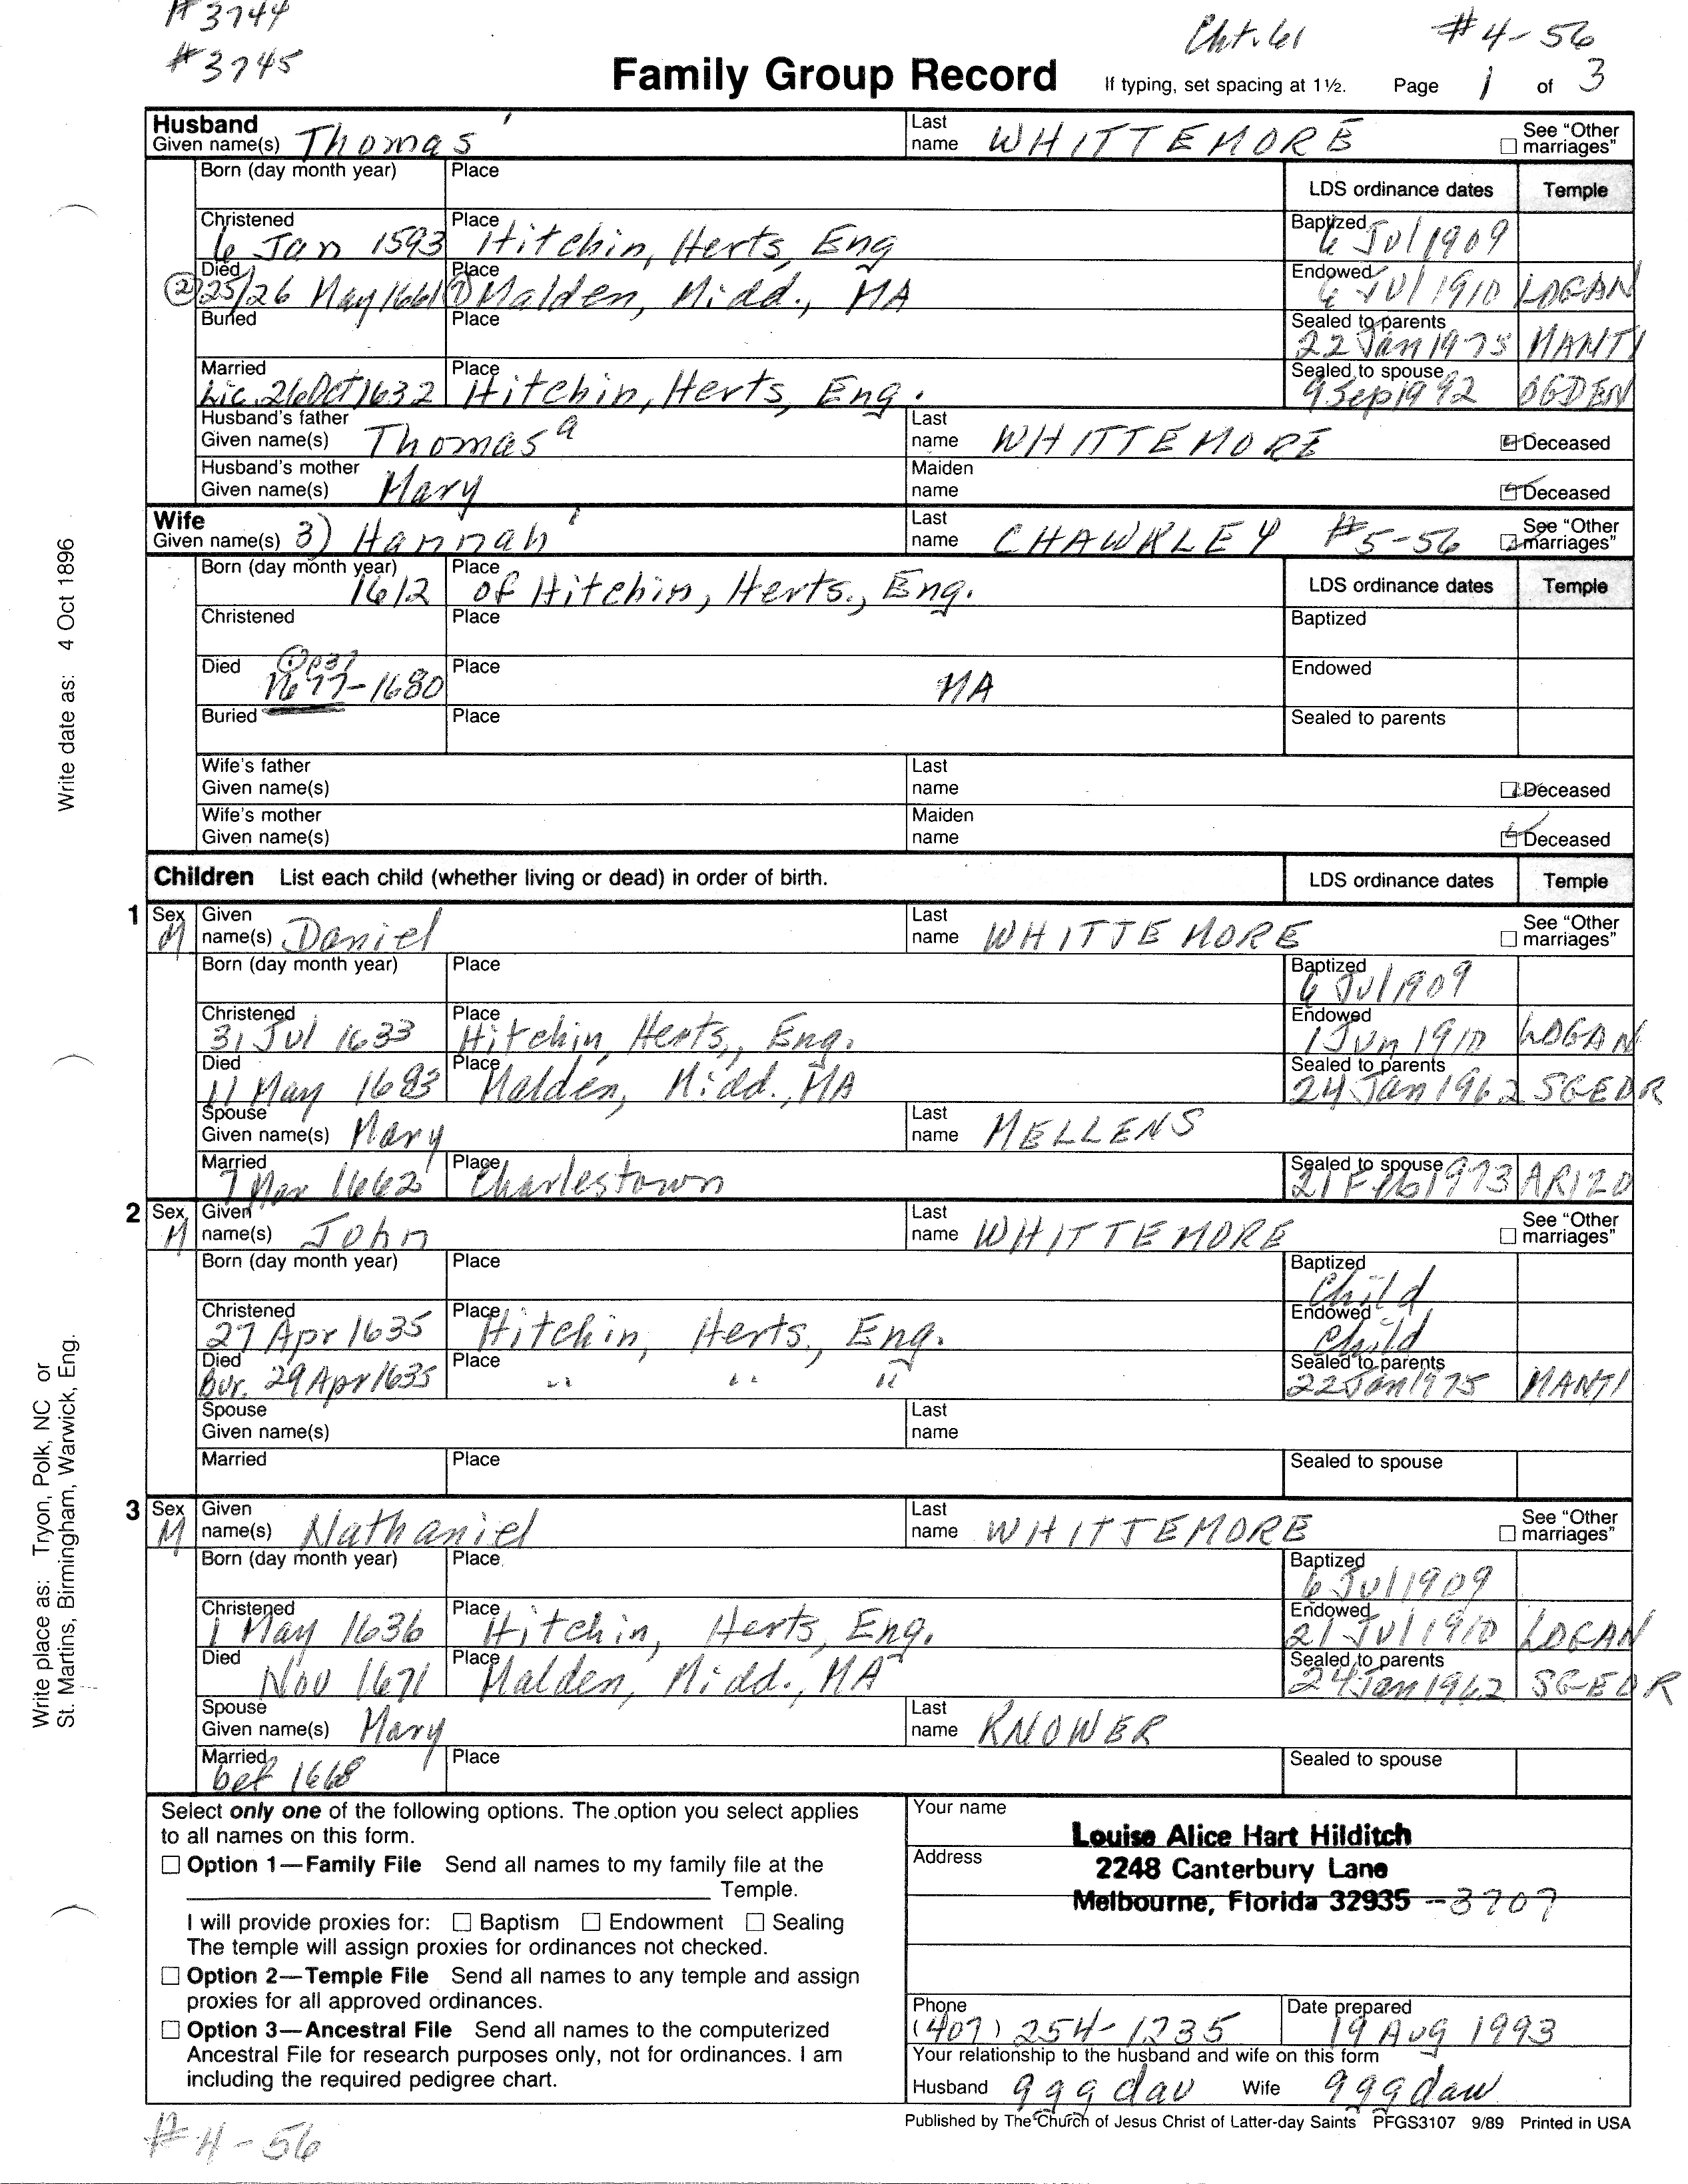 #3744
#3745
Cht. 61
#4-56
Family Group Record
If typing, set spacing at 1½.
Page 1 of 3
Husband
Given name(s) Thomas
Last name WHITTEMORE
See "Other marriages"
Born (day month year)
Place
LDS ordinance dates
Temple
Christened 6 Jan 1593
Place Hitchin, Herts, Eng
Baptized 6 Jul 1909
Died ② 25/26 May 1661
Place ① Malden, Midd., MA
Endowed 6 Jul 1910 LOGAN
Buried
Place
Sealed to parents 22 Jan 1975 MANTI
Married Lic. 26 Oct 1632
Place Hitchin, Herts, Eng.
Sealed to spouse 9 Sep 1992 OGDEN
Husband's father
Given name(s) Thomas a
Last name WHITTEMORE
Deceased
Husband's mother
Given name(s) Mary
Maiden name
Deceased
Wife
Given name(s) 3) Hannah
Last name CHAWKLEY #5-56
See "Other marriages"
Born (day month year) 1612
Place of Hitchin, Herts., Eng.
LDS ordinance dates
Temple
Christened
Place
Baptized
Died ① p37 1677-1680
Place MA
Endowed
Buried
Place
Sealed to parents
Wife's father
Given name(s)
Last name
Deceased
Wife's mother
Given name(s)
Maiden name
Deceased
Children List each child (whether living or dead) in order of birth.
LDS ordinance dates
Temple
1 Sex M
Given name(s) Daniel
Last name WHITTEMORE
See "Other marriages"
Born (day month year)
Place
Baptized 6 Jul 1909
Christened 31 Jul 1633
Place Hitchin, Herts., Eng.
Endowed 1 Jun 1910 LOGAN
Died 11 May 1683
Place Malden, Midd., MA
Sealed to parents 24 Jan 1962 SGEOR
Spouse
Given name(s) Mary
Last name MELLENS
Married 7 Mar 1662
Place Charlestown
Sealed to spouse 21 Feb 1973 ARIZO
2 Sex M
Given name(s) John
Last name WHITTEMORE
See "Other marriages"
Born (day month year)
Place
Baptized Child
Christened 27 Apr 1635
Place Hitchin, Herts., Eng.
Endowed Child
Died Bur. 29 Apr 1635
Place " " "
Sealed to parents 22 Jan 1975 MANTI
Spouse
Given name(s)
Last name
Married
Place
Sealed to spouse
3 Sex M
Given name(s) Nathaniel
Last name WHITTEMORE
See "Other marriages"
Born (day month year)
Place
Baptized 6 Jul 1909
Christened 1 May 1636
Place Hitchin, Herts, Eng.
Endowed 21 Jul 1910 LOGAN
Died Nov 1671
Place Malden, Midd., MA
Sealed to parents 24 Jan 1962 SGEOR
Spouse
Given name(s) Mary
Last name KNOWER
Married bef 1668
Place
Sealed to spouse
Select only one of the following options. The option you select applies
to all names on this form.
Option 1—Family File Send all names to my family file at the
Temple.
I will provide proxies for: Baptism Endowment Sealing
The temple will assign proxies for ordinances not checked.
Option 2—Temple File Send all names to any temple and assign
proxies for all approved ordinances.
Option 3—Ancestral File Send all names to the computerized
Ancestral File for research purposes only, not for ordinances. I am
including the required pedigree chart.
Your name
Louise Alice Hart Hilditch
Address
2248 Canterbury Lane
Melbourne, Florida 32935 -3707
Phone (407) 254-1235
Date prepared 19 Aug 1993
Your relationship to the husband and wife on this form
Husband ggg dau Wife ggg dau
Published by The Church of Jesus Christ of Latter-day Saints PFGS3107 9/89 Printed in USA
#4-56
Write date as: 4 Oct 1896
Write place as: Tryon, Polk, NC or
St. Martins, Birmingham, Warwick, Eng.